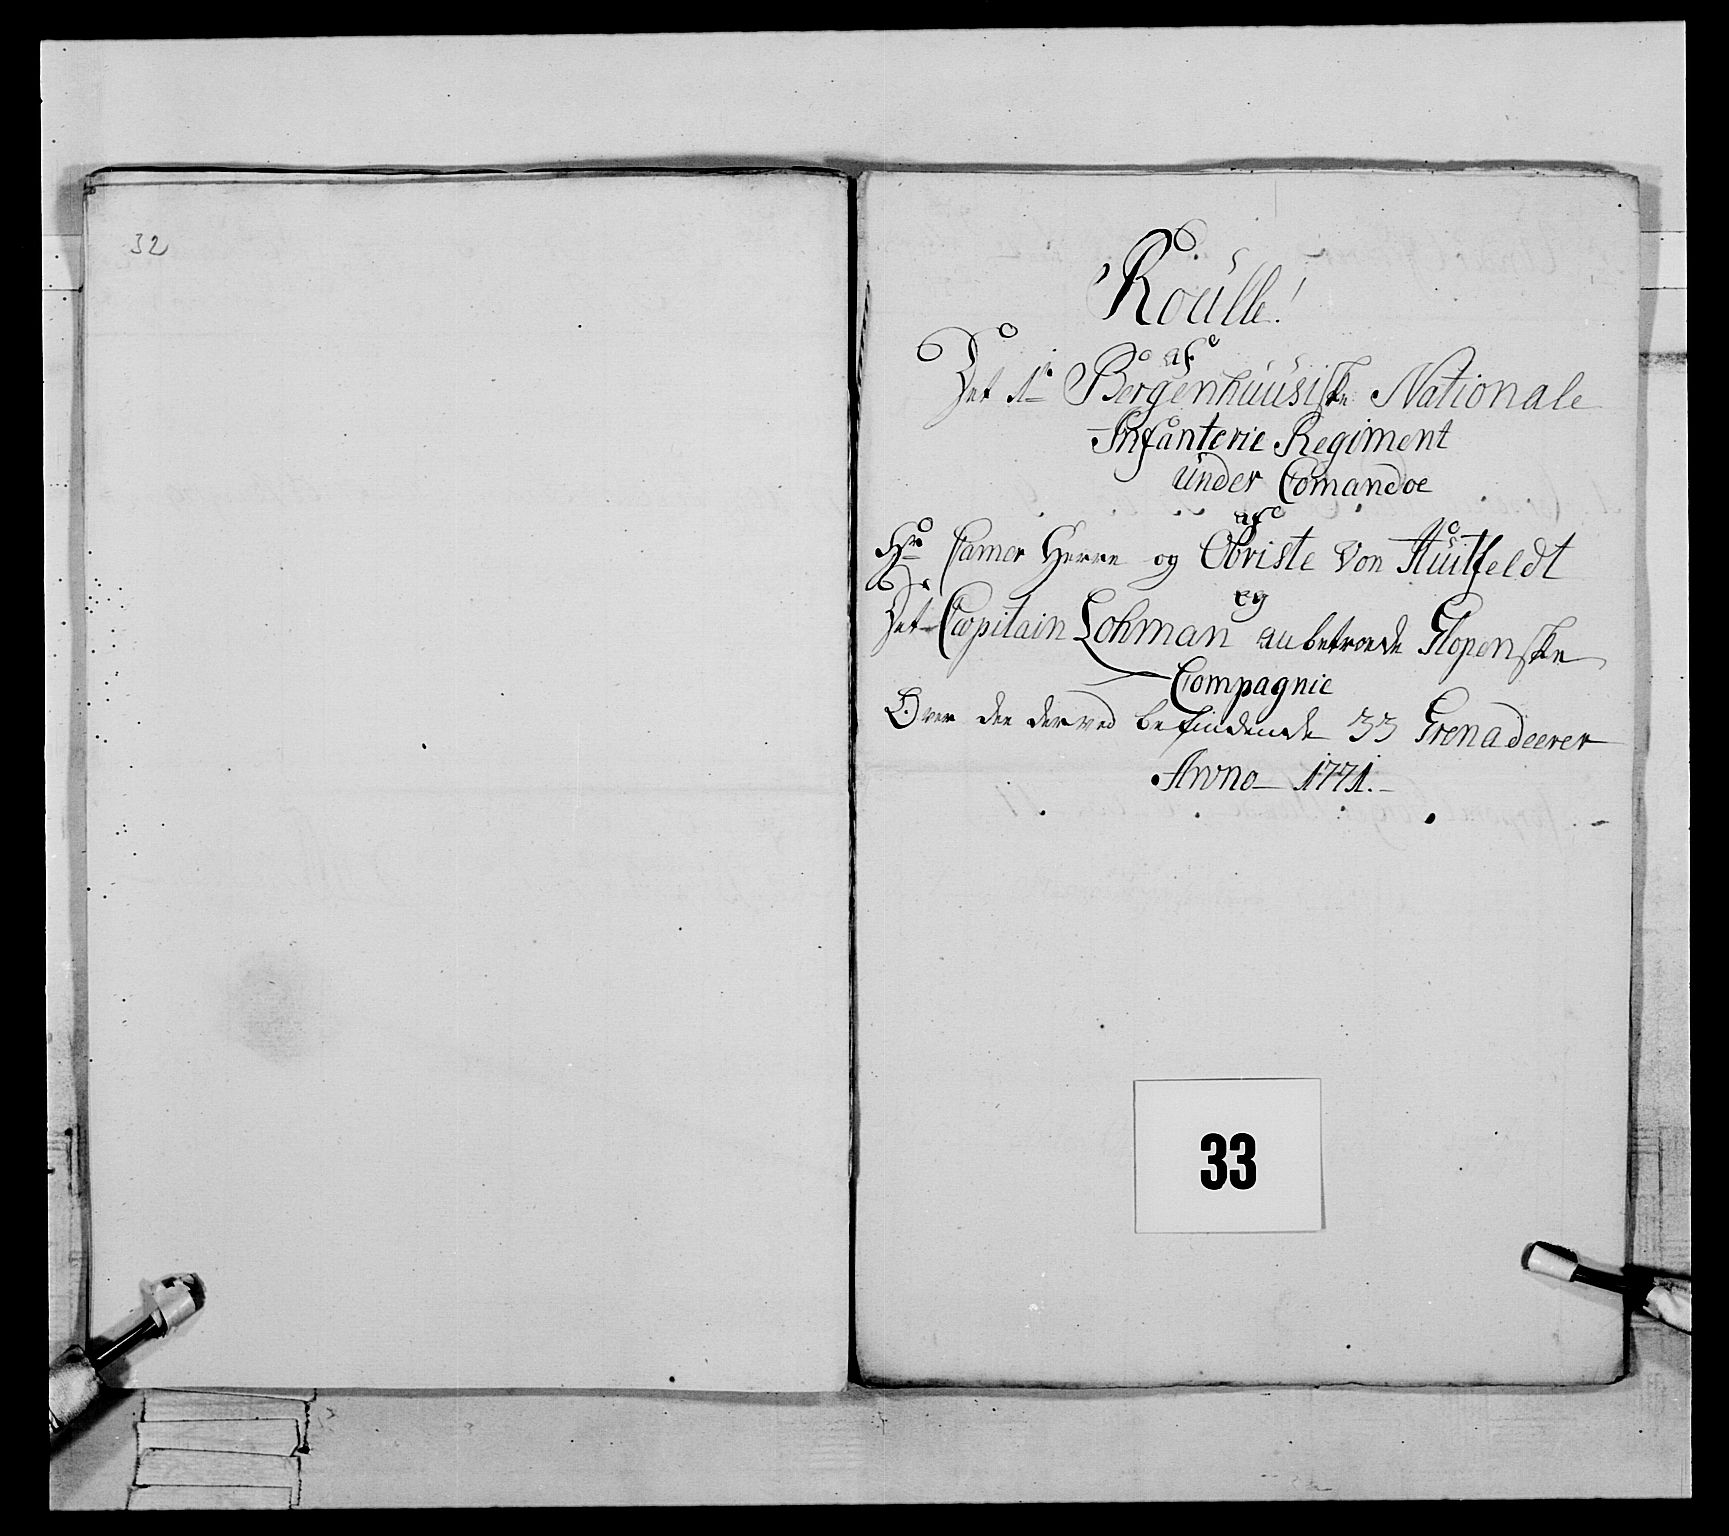 32
Roulle!
af
Det 1te Bergenhuusiske Nationale
Infanterie Regiment
under Comandoe
af
Hr Camer Herre og Obriste Von Huitfeldt
og
Det Capitain Lohman anbetroede Glopenske
Compagnie
Over dee derved befindende 33 Grenadeerer
Anno 1771.
33